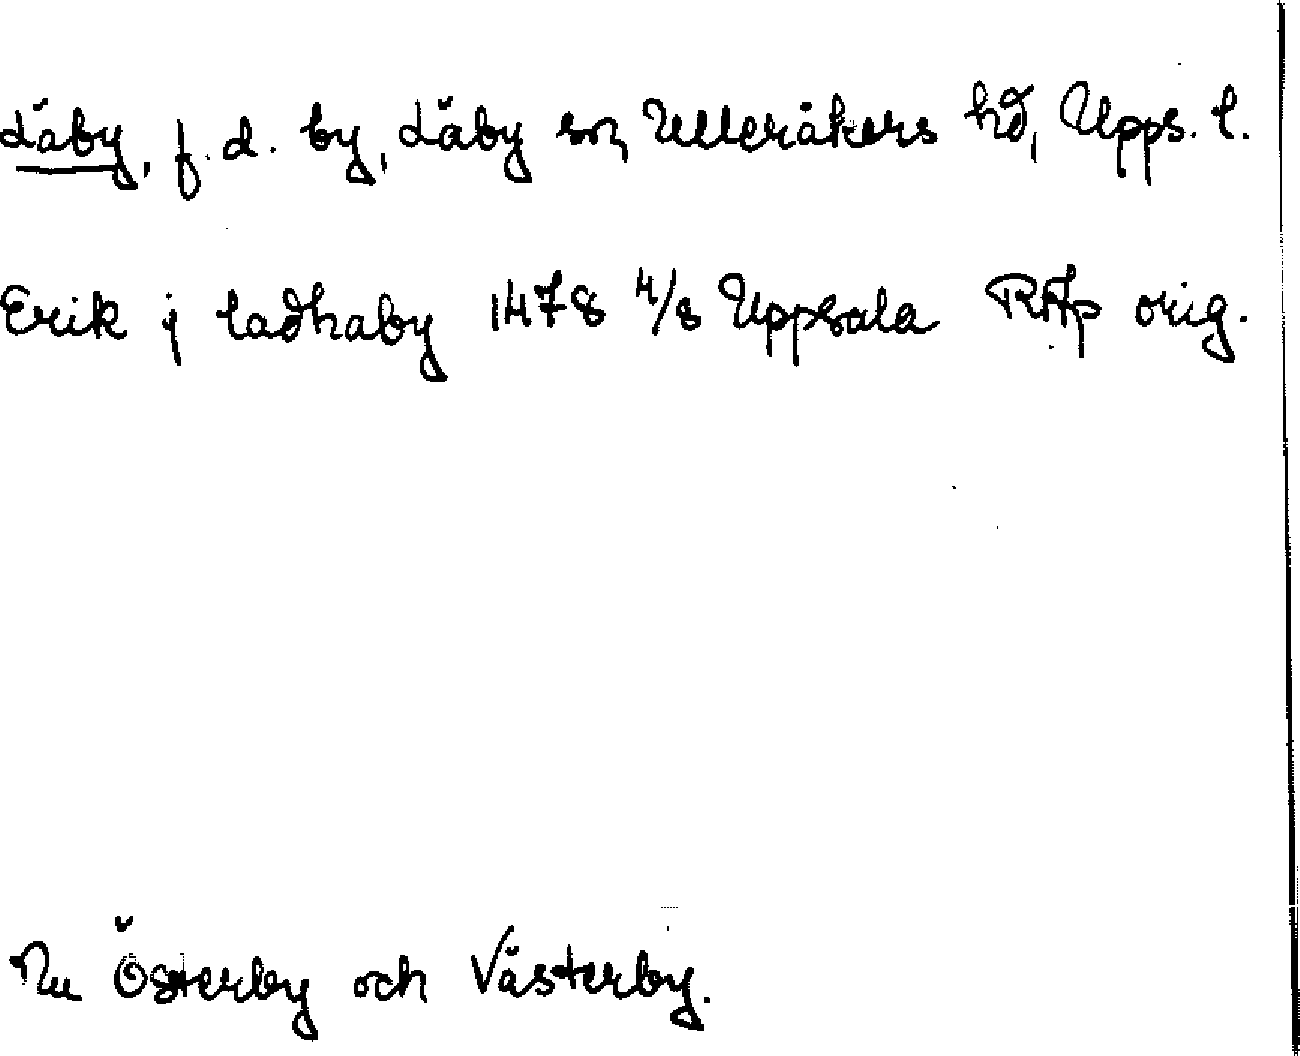 Läby, f. d. by, Läby sn, Ulleråkers hd, Upps. l.
Erik j ladhaby 1478 4/8 Uppsala RAp orig.
Nu Österby och Västerby.